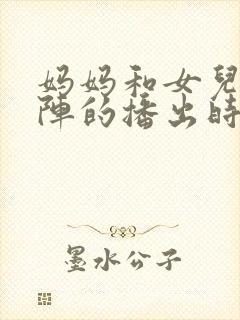 妈妈和女兒
陣的播出時
墨水公子